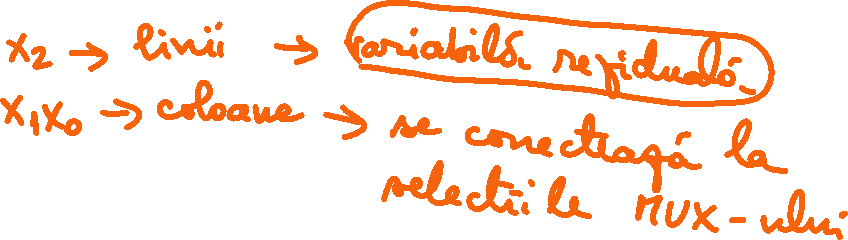 x₂ → linii → variabilă reziduală
x₁x₀ → coloane → se conectează la
selecțiile MUX-ului